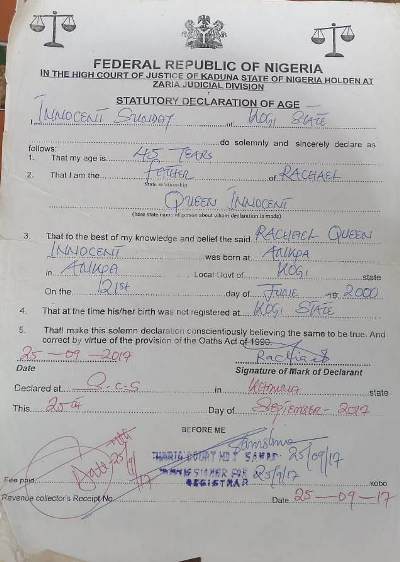 FEDERAL REPUBLIC OF NIGERIA
IN THE HIGH COURT OF JUSTICE OF KADUNA STATE OF NIGERIA HOLDEN AT
ZARIA JUDICIAL DIVISION
STATUTORY DECLARATION OF AGE
I INNOCENT SUNDAY of KOGI STATE
do solemnly and sincerely declare as
follows:
1. That my age is 45 YEARS
2. That I am the FATHER of RACHAEL
QUEEN INNOCENT
3. That to the best of my knowledge and belief the said RACHAEL QUEEN
INNOCENT was born at ANKPA
in ANKPA Local Govt of KOGI state
On the 21st day of JUNE 19 2000
4. That at the time his/her birth was not registered at KOGI STATE
5. That I make this solemn declaration conscientiously believing the same to be true. And
correct by virtue of the provision of the Oaths Act of 1990.
25-09-2017 Rachael
Date Signature of Mark of Declarant
Declared at S.C.S in KADUNA state
This 25th Day of SEPTEMBER-2017
BEFORE ME
25/09/17
COURT NO.1
25/9/17
REGISTRAR
Fee paid kobo
Revenue collector's Receipt No. Date 25-09-17